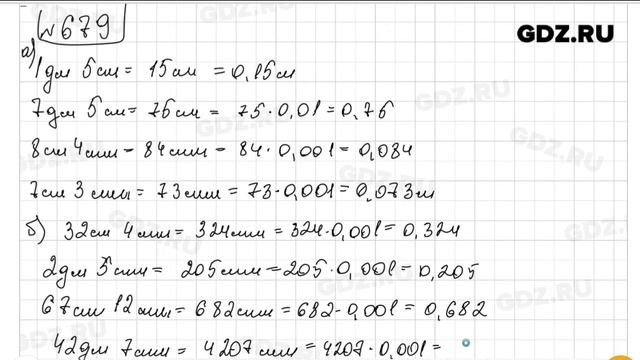 №679
GDZ.RU
а)
1дм 5см = 15см = 0,15м
7дм 5см = 75см = 75·0,01 = 0,75
8см 4мм = 84мм = 84·0,001 = 0,084
7см 3мм = 73мм = 73·0,001 = 0,073м
б) 32см 4мм = 324мм = 324·0,001 = 0,324
2дм 5мм = 205мм = 205·0,001 = 0,205
67см 12мм = 682мм = 682·0,001 = 0,682
42дм 7мм = 4207мм = 4207·0,001 =